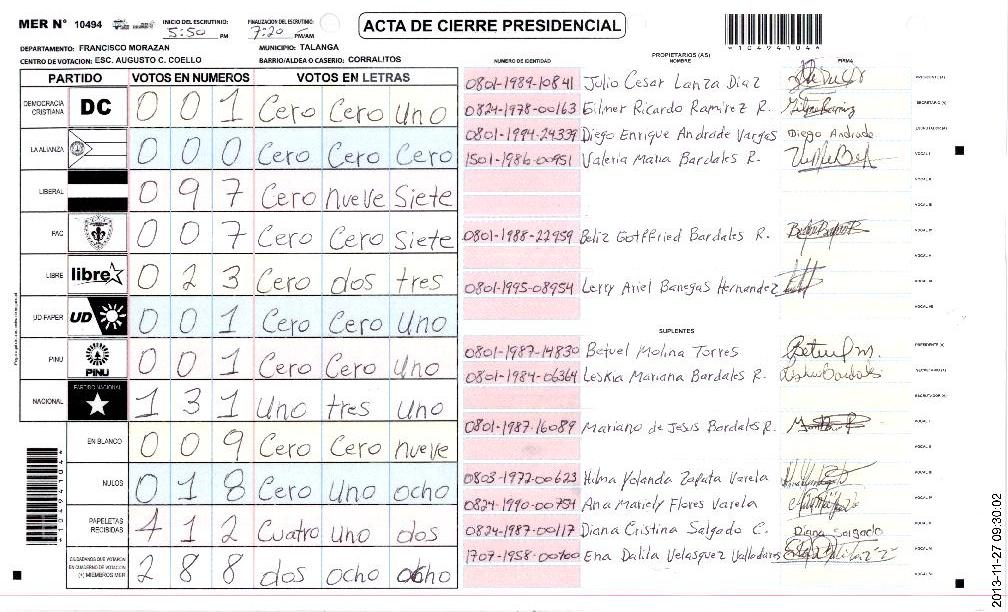 MER N° 10494
INICIO DEL ESCRUTINIO: 5:50 PM
FINALIZACION DEL ESCRUTINIO: 7:20 PM/AM
ACTA DE CIERRE PRESIDENCIAL
*10494104*
DEPARTAMENTO: FRANCISCO MORAZAN
MUNICIPIO: TALANGA
CENTRO DE VOTACION: ESC. AUGUSTO C. COELLO
BARRIO/ALDEA O CASERIO: CORRALITOS
PARTIDO VOTOS EN NUMEROS VOTOS EN LETRAS
DEMOCRACIA CRISTIANA DC 0 0 1 Cero Cero Uno
LA ALIANZA 0 0 0 Cero Cero Cero
LIBERAL 0 9 7 Cero nueve Siete
FAC 0 0 7 Cero Cero Siete
LIBRE libre 0 2 3 Cero dos tres
UD-FAPER UD 0 0 1 Cero Cero Uno
PINU PINU 0 0 1 Cero Cero Uno
NACIONAL PARTIDO NACIONAL 1 3 1 Uno tres Uno
EN BLANCO 0 0 9 Cero Cero nueve
NULOS 0 1 8 Cero Uno ocho
PAPELETAS RECIBIDAS 4 1 2 Cuatro Uno dos
CIUDADANOS QUE VOTARON EN CUADERNO DE VOTACION (+) MIEMBROS MER 2 8 8 dos ocho ocho
*10494104*
NUMERO DE IDENTIDAD PROPIETARIOS (AS) NOMBRE FIRMA
0801-1989-10841 Julio Cesar Lanza Diaz PRESIDENTE (A)
0824-1978-00163 Gilmer Ricardo Ramirez R. SECRETARIO (A)
0801-1994-24339 Diego Enrique Andrade Vargas Diego Andrade ESCRUTADOR (A)
1501-1986-00951 Valeria Maria Bardales R. VOCAL I
VOCAL II
VOCAL III
0801-1988-22959 Beliz Gottfried Bardales R. VOCAL IV
VOCAL V
0801-1995-08954 Lercy Ariel Banegas Hernandez VOCAL VI
SUPLENTES
0801-1987-14830 Betuel Molina Torres PRESIDENTE (A)
0801-1984-06364 Leskia Mariana Bardales R. SECRETARIO (A)
ESCRUTADOR (A)
0801-1987-16089 Mariano de Jesus Bardales R. VOCAL I
VOCAL II
0803-1972-00623 Hilma Yolanda Zapata Varela VOCAL III
0824-1990-00754 Ana Mariely Flores Varela
0824-1987-00117 Diana Cristina Salgado C. Diana Salgado
1707-1958-00700 Ena Dalila Velasquez Valladares
2013-11-27 09:30:02